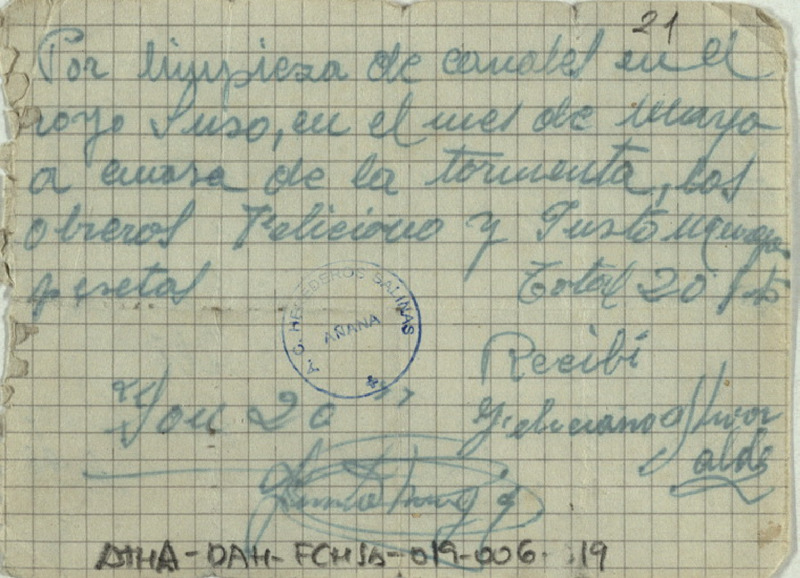 21
Por limpieza de canales en el
royo Suso, en el mes de Mayo
a causa de la tormenta, los
obreros Feliciano y Justo
pesetas Total 20 pts
T. C. HEREDEROS SALINAS
AÑANA
Recibí
Son 20 "
Feliciano
ATHA-DAH-FCHSA-019-006-019